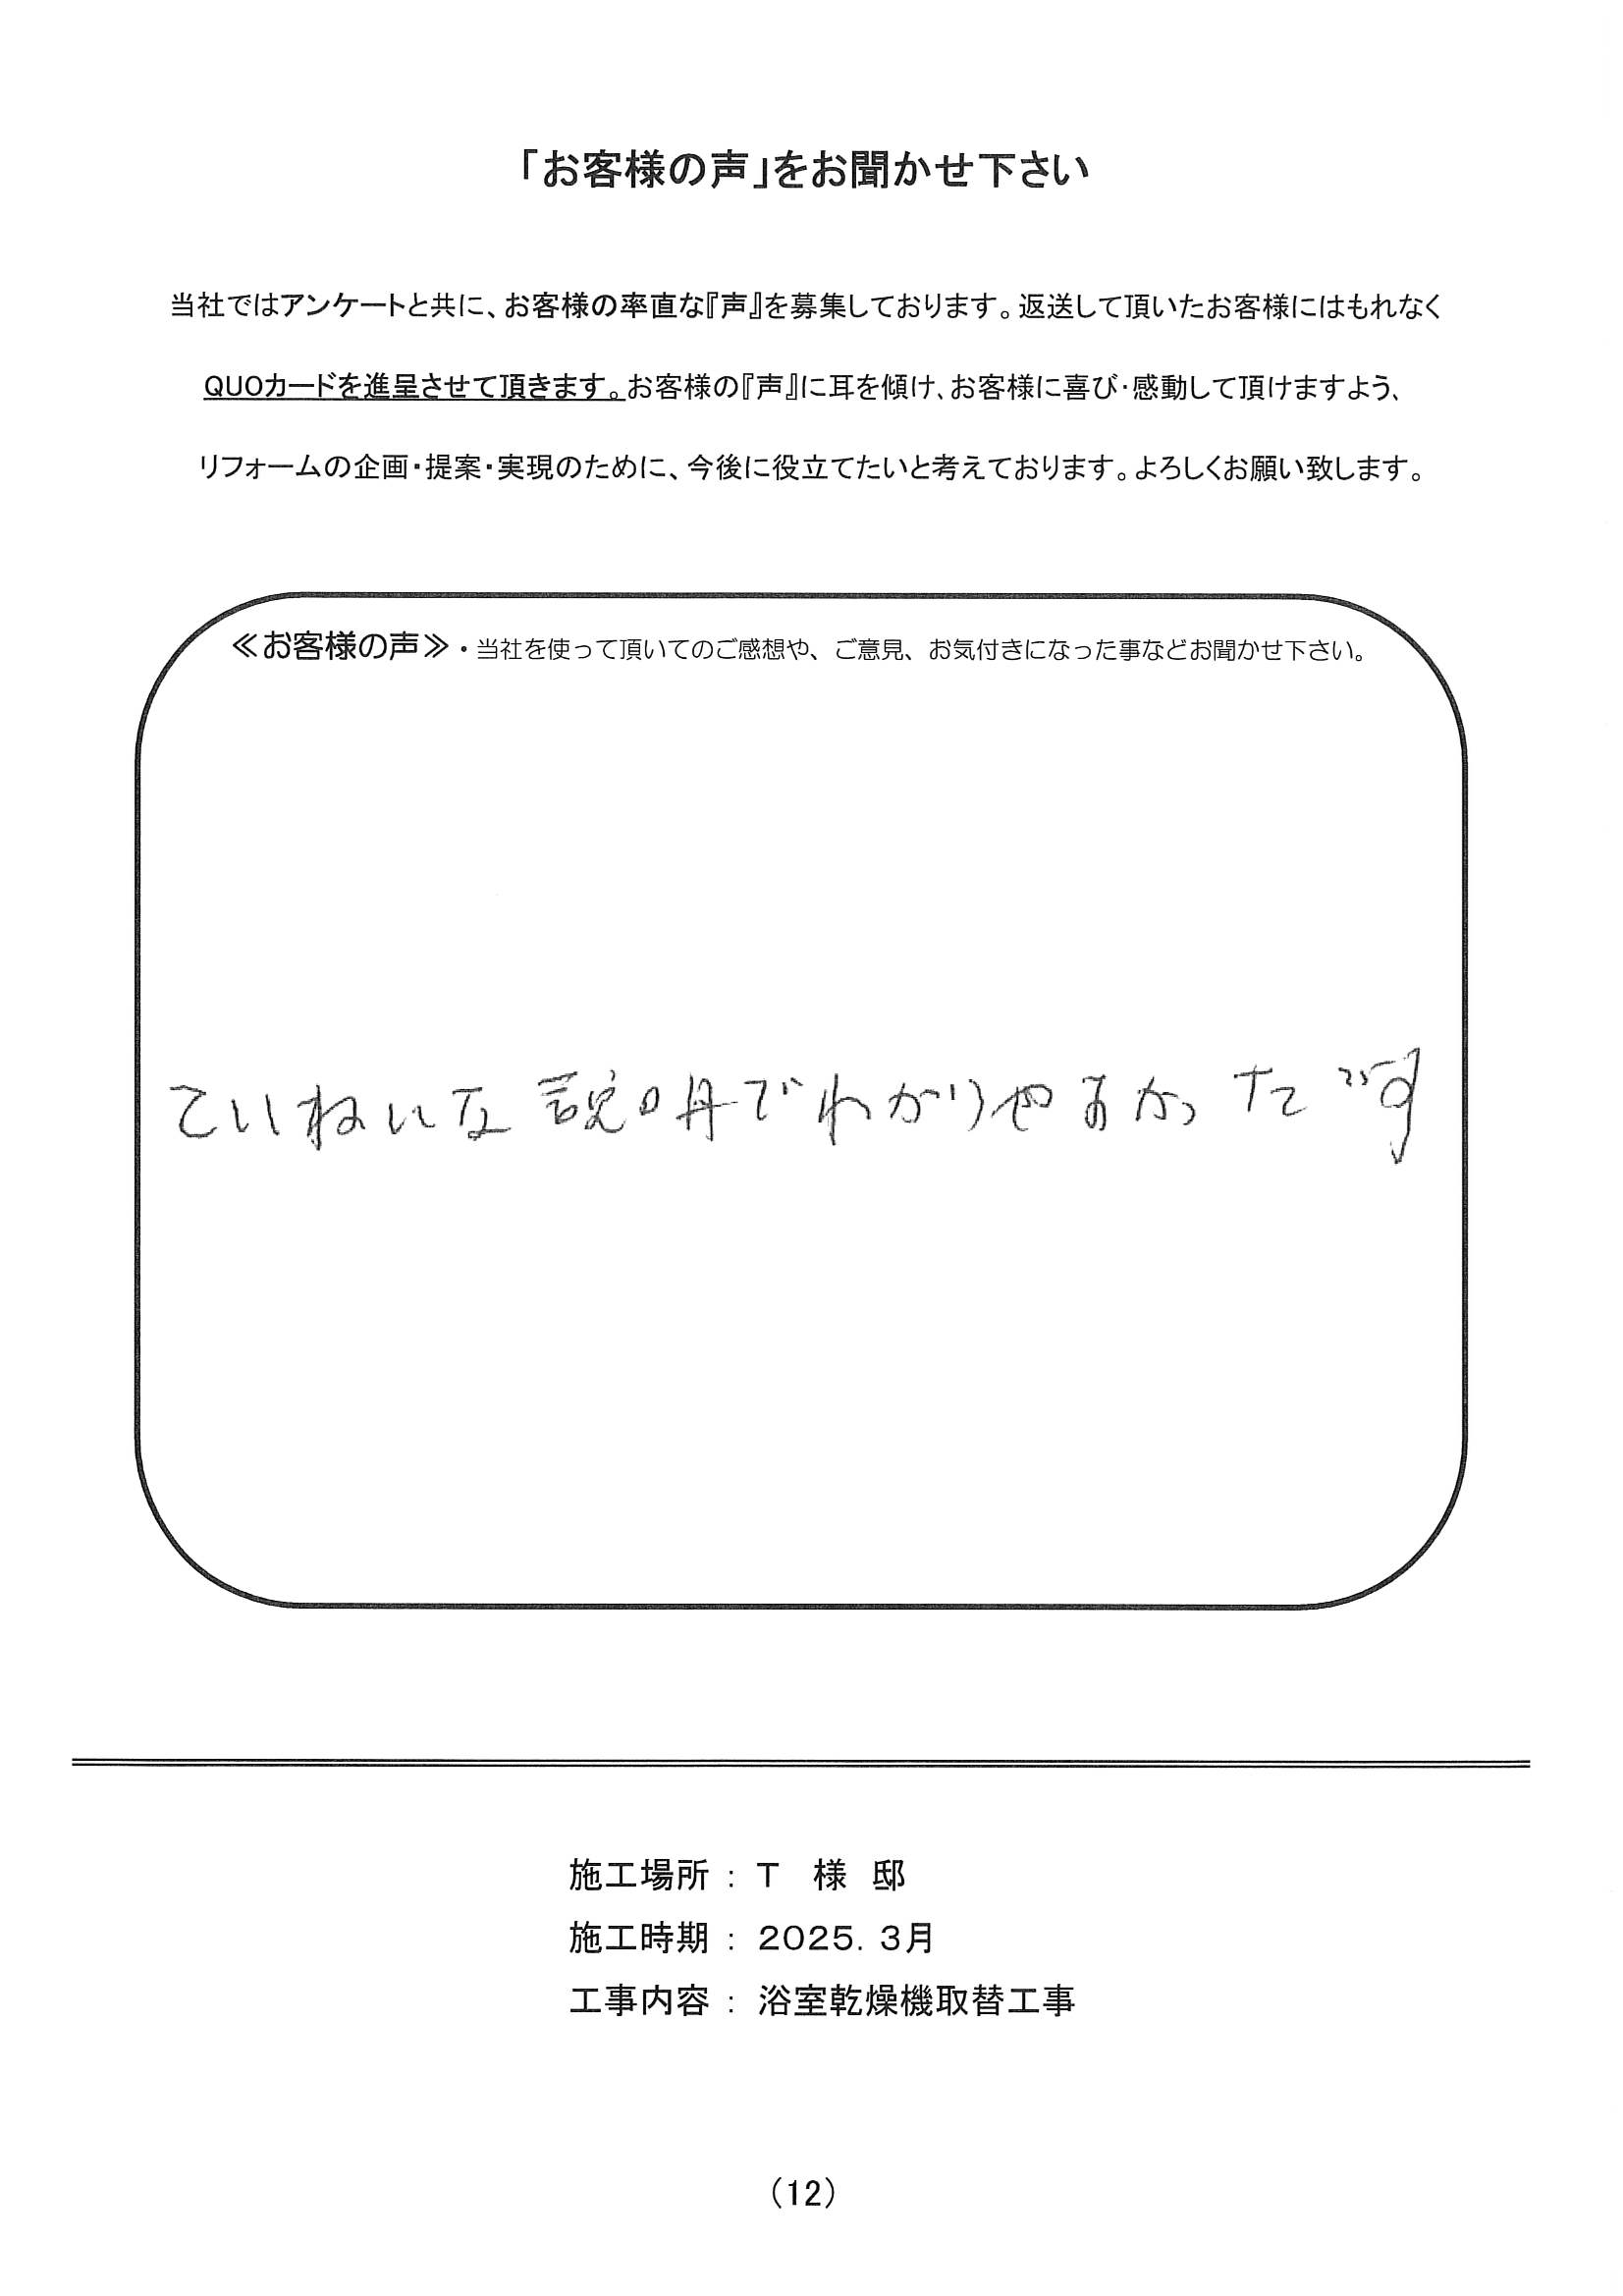 「お客様の声」をお聞かせ下さい
当社ではアンケートと共に、お客様の率直な『声』を募集しております。返送して頂いたお客様にはもれなく
QUOカードを進呈させて頂きます。お客様の『声』に耳を傾け、お客様に喜び・感動して頂けますよう、
リフォームの企画・提案・実現のために、今後に役立てたいと考えております。よろしくお願い致します。
≪お客様の声≫・当社を使って頂いてのご感想や、ご意見、お気付きになった事などお聞かせ下さい。
ていねいな説明でわかりやすかったです
施工場所：T 様 邸
施工時期：2025. 3月
工事内容：浴室乾燥機取替工事
（12）